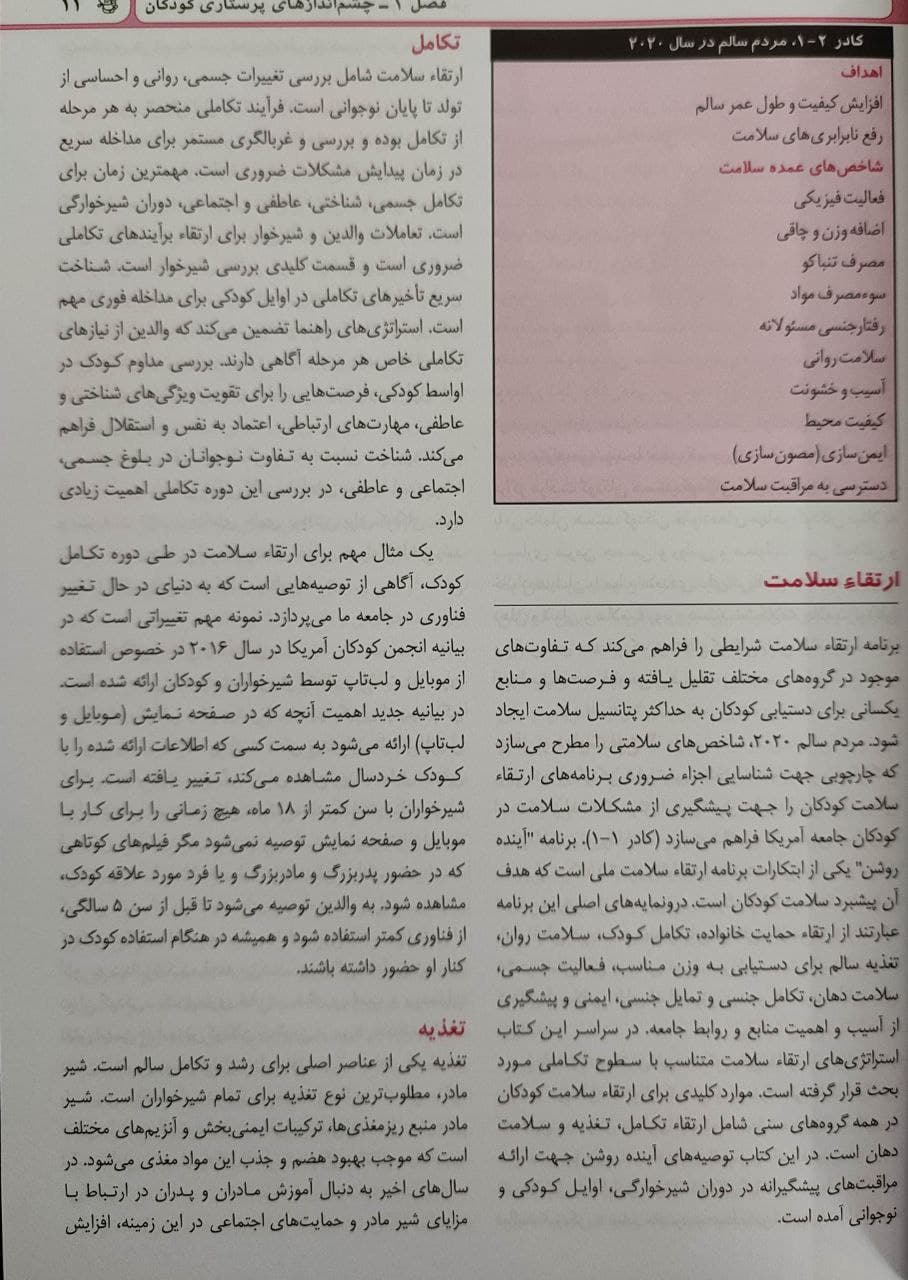 فصل ۱ ـ چشم‌اندازهای پرستاری کودکان
۱۱
کادر ۲-۱. مردم سالم در سال ۲۰۲۰
اهداف
افزایش کیفیت و طول عمر سالم
رفع نابرابری‌های سلامت
شاخص‌های عمده سلامت
فعالیت فیزیکی
اضافه وزن و چاقی
مصرف تنباکو
سوءمصرف مواد
رفتارجنسی مسئولانه
سلامت روانی
آسیب و خشونت
کیفیت محیط
ایمن‌سازی (مصون‌سازی)
دسترسی به مراقبت سلامت
ارتقاءِ سلامت
برنامه ارتقاء سلامت شرایطی را فراهم می‌کند که تفاوت‌های
موجود در گروه‌های مختلف تقلیل یافته و فرصت‌ها و منابع
یکسانی برای دستیابی کودکان به حداکثر پتانسیل سلامت ایجاد
شود. مردم سالم ۲۰۲۰، شاخص‌های سلامتی را مطرح می‌سازد
که چارچوبی جهت شناسایی اجزاء ضروری برنامه‌های ارتقاء
سلامت کودکان را جهت پیشگیری از مشکلات سلامت در
کودکان جامعه آمریکا فراهم می‌سازد (کادر ۱-۱). برنامه "آینده
روشن" یکی از ابتکارات برنامه ارتقاء سلامت ملی است که هدف
آن پیشبرد سلامت کودکان است. درونمایه‌های اصلی این برنامه
عبارتند از ارتقاء حمایت خانواده، تکامل کودک، سلامت روان،
تغذیه سالم برای دستیابی به وزن مناسب، فعالیت جسمی،
سلامت دهان، تکامل جنسی و تمایل جنسی، ایمنی و پیشگیری
از آسیب و اهمیت منابع و روابط جامعه. در سراسر این کتاب
استراتژی‌های ارتقاء سلامت متناسب با سطوح تکاملی مورد
بحث قرار گرفته است. موارد کلیدی برای ارتقاء سلامت کودکان
در همه گروه‌های سنی شامل ارتقاء تکامل، تغذیه و سلامت
دهان است. در این کتاب توصیه‌های آینده روشن جهت ارائه
مراقبت‌های پیشگیرانه در دوران شیرخوارگی، اوایل کودکی و
نوجوانی آمده است.
تکامل
ارتقاء سلامت شامل بررسی تغییرات جسمی، روانی و احساسی از
تولد تا پایان نوجوانی است. فرآیند تکاملی منحصر به هر مرحله
از تکامل بوده و بررسی و غربالگری مستمر برای مداخله سریع
در زمان پیدایش مشکلات ضروری است. مهمترین زمان برای
تکامل جسمی، شناختی، عاطفی و اجتماعی، دوران شیرخوارگی
است. تعاملات والدین و شیرخوار برای ارتقاء برآیندهای تکاملی
ضروری است و قسمت کلیدی بررسی شیرخوار است. شناخت
سریع تأخیرهای تکاملی در اوایل کودکی برای مداخله فوری مهم
است. استراتژی‌های راهنما تضمین می‌کند که والدین از نیازهای
تکاملی خاص هر مرحله آگاهی دارند. بررسی مداوم کودک در
اواسط کودکی، فرصت‌هایی را برای تقویت ویژگی‌های شناختی و
عاطفی، مهارت‌های ارتباطی، اعتماد به نفس و استقلال فراهم
می‌کند. شناخت نسبت به تفاوت نوجوانان در بلوغ جسمی،
اجتماعی و عاطفی، در بررسی این دوره تکاملی اهمیت زیادی
دارد.
یک مثال مهم برای ارتقاء سلامت در طی دوره تکامل
کودک، آگاهی از توصیه‌هایی است که به دنیای در حال تغییر
فناوری در جامعه ما می‌پردازد. نمونه مهم تغییراتی است که در
بیانیه انجمن کودکان آمریکا در سال ۲۰۱۶ در خصوص استفاده
از موبایل و لب‌تاپ توسط شیرخواران و کودکان ارائه شده است.
در بیانیه جدید اهمیت آنچه که در صفحه نمایش (موبایل و
لب‌تاپ) ارائه می‌شود به سمت کسی که اطلاعات ارائه شده را با
کودک خردسال مشاهده می‌کند، تغییر یافته است. برای
شیرخواران با سن کمتر از ۱۸ ماه، هیچ زمانی را برای کار با
موبایل و صفحه نمایش توصیه نمی‌شود مگر فیلم‌های کوتاهی
که در حضور پدربزرگ و مادربزرگ و یا فرد مورد علاقه کودک،
مشاهده شود. به والدین توصیه می‌شود تا قبل از سن ۵ سالگی،
از فناوری کمتر استفاده شود و همیشه در هنگام استفاده کودک در
کنار او حضور داشته باشند.
تغذیه
تغذیه یکی از عناصر اصلی برای رشد و تکامل سالم است. شیر
مادر، مطلوب‌ترین نوع تغذیه برای تمام شیرخواران است. شیر
مادر منبع ریزمغذی‌ها، ترکیبات ایمنی‌بخش و آنزیم‌های مختلف
است که موجب بهبود هضم و جذب این مواد مغذی می‌شود. در
سال‌های اخیر به دنبال آموزش مادران و پدران در ارتباط با
مزایای شیر مادر و حمایت‌های اجتماعی در این زمینه، افزایش